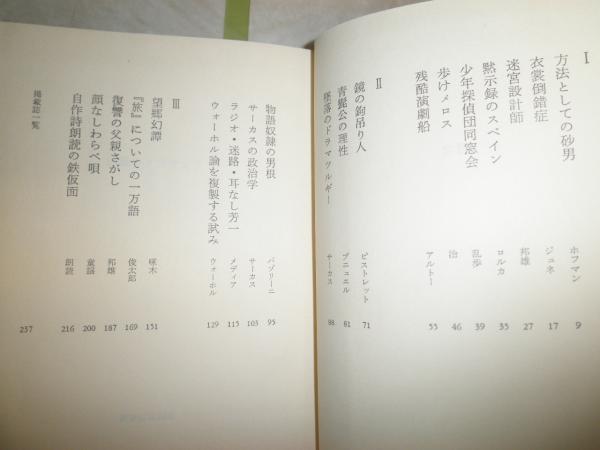 I
方法としての砂男 ホフマン 9
衣裳倒錯症 ジュネ 17
迷宮設計師 邦雄 27
黙示録のスペイン ロルカ 35
少年探偵団同窓会 乱歩 39
歩けメロス 治 46
残酷演劇船 アルトー 55
II
鏡の鉤吊り人 ピストレット 71
青髭公の理性 ブニュエル 81
墜落のドラマツルギー サーカス 88
物語奴隷の男根 パゾリーニ 95
サーカスの政治学 サーカス 103
ラジオ・迷路・耳なし芳一 メディア 115
ウォーホル論を複製する試み ウォーホル 129
III
望郷幻譚 啄木 151
『旅』についての一万語 俊太郎 169
復讐の父親さがし 邦雄 187
顔なしわらべ唄 童謡 200
自作詩朗読の鉄仮面 朗読 216
掲載誌一覧 237